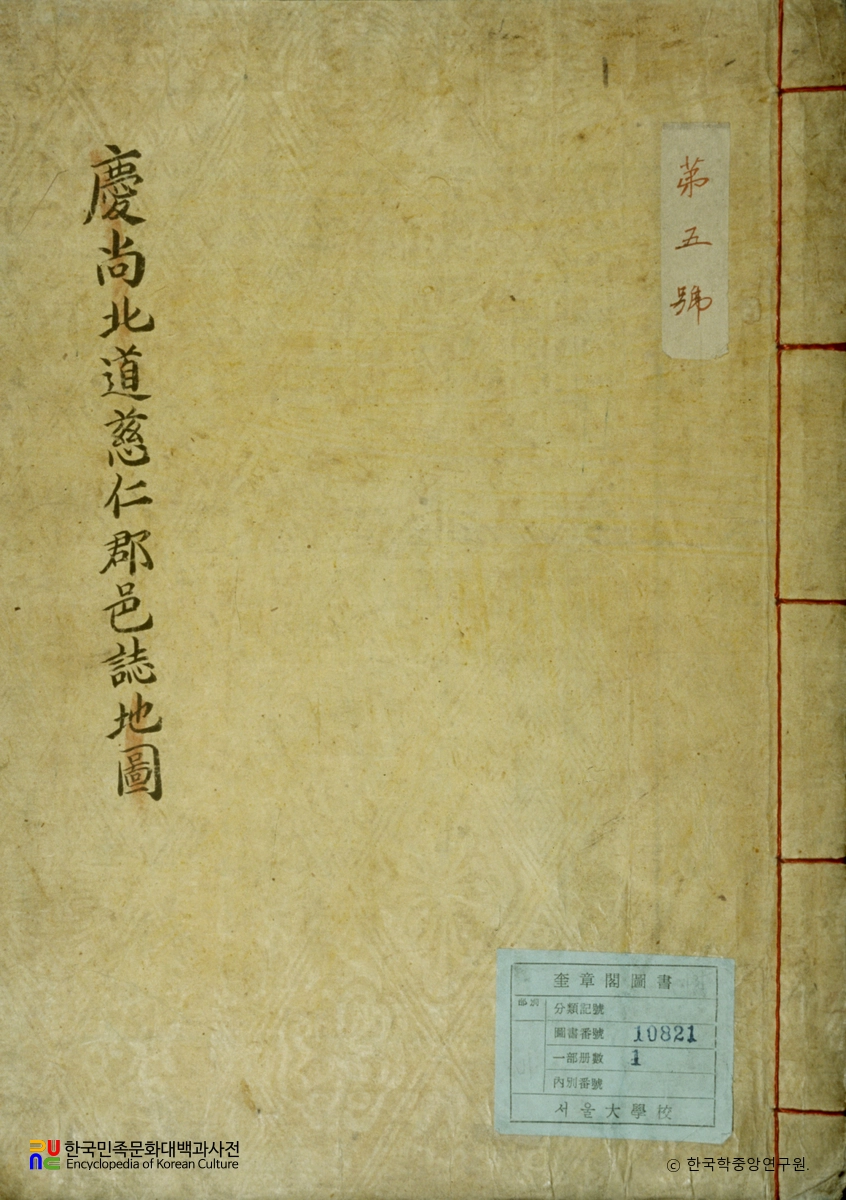 第五號
慶尙北道慈仁郡邑誌地圖
奎章閣圖書
分類記號
圖書番號 10821
一部册數 1
內別番號
서울大學校
한국민족문화대백과사전
Encyclopedia of Korean Culture
ⓒ 한국학중앙연구원.